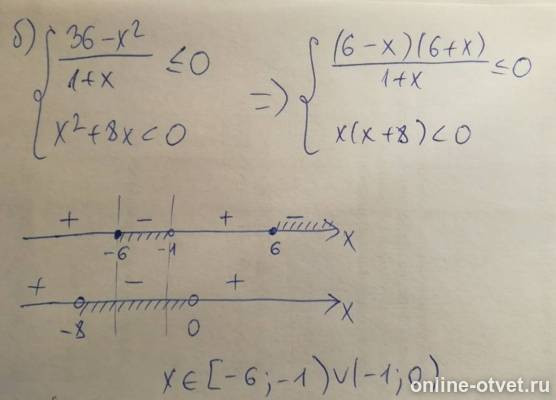 б) { (36-x²)/(1+x) ≤ 0 => { ((6-x)(6+x))/(1+x) ≤ 0
x²+8x<0 x(x+8)<0
+ - + -
-6 -1 6 x
+ - +
-8 0 x
x∈[-6;-1)∪(-1;0)
online-otvet.ru